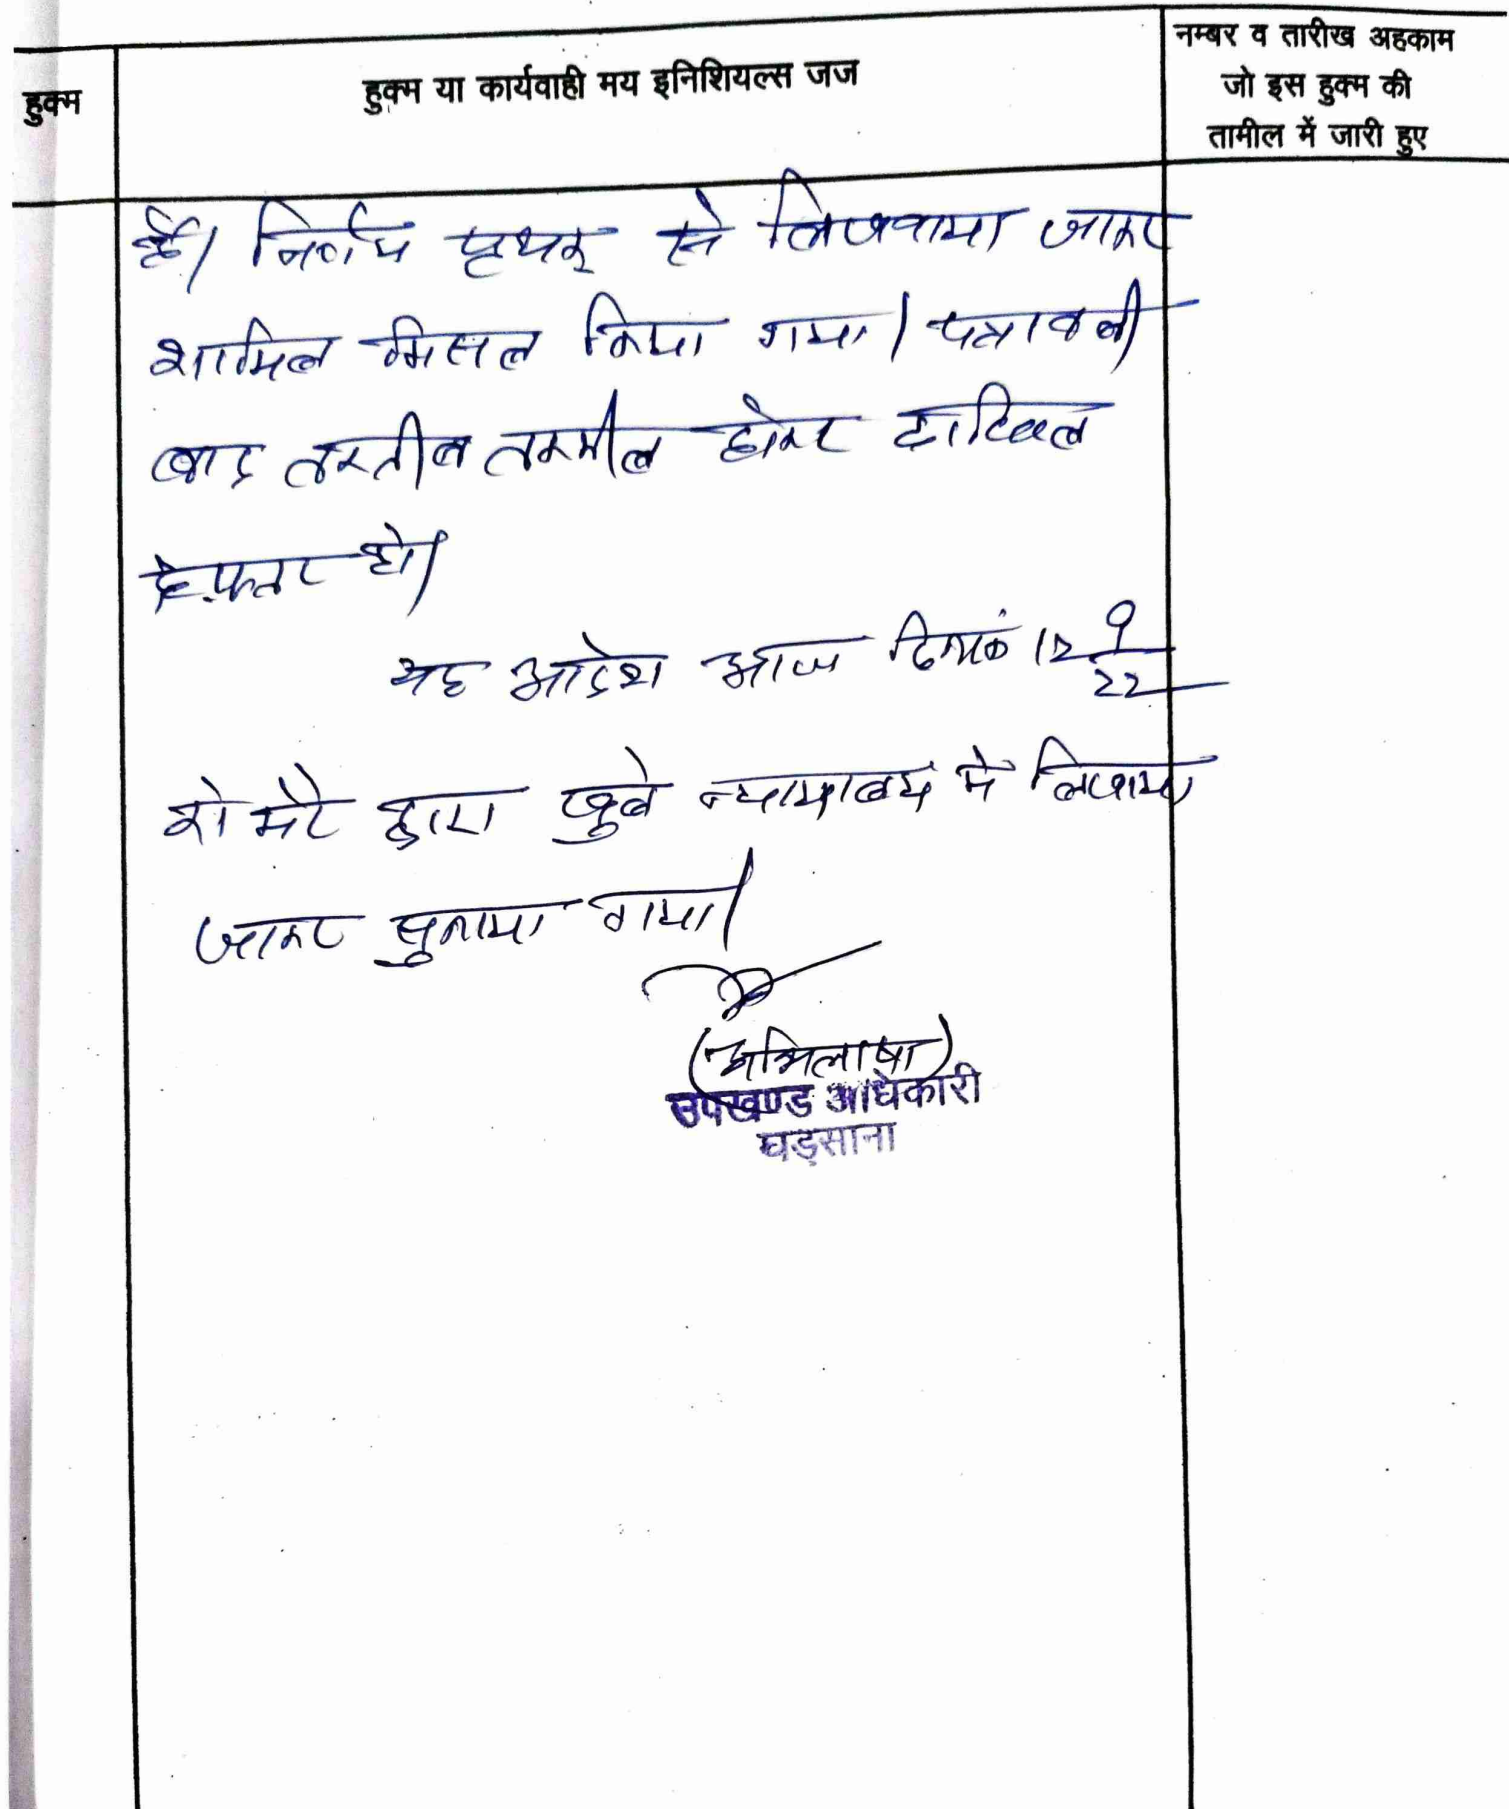 हुक्म
हुक्म या कार्यवाही मय इनिशियल्स जज
नम्बर व तारीख अहकाम
जो इस हुक्म की
तामील में जारी हुए
है। निर्णय पृथक से लिखवाया जाकर
शामिल मिसल किया गया। पत्रावली
बाद तरतीब तकमील होकर दाखिल
दफ्तर हो।
यह आदेश आज दिनांक 12 9/22
को मेरे द्वारा खुले न्यायालय में लिखाया
जाकर सुनाया गया।
(अभिलाषा)
उपखण्ड अधिकारी
घड़साना